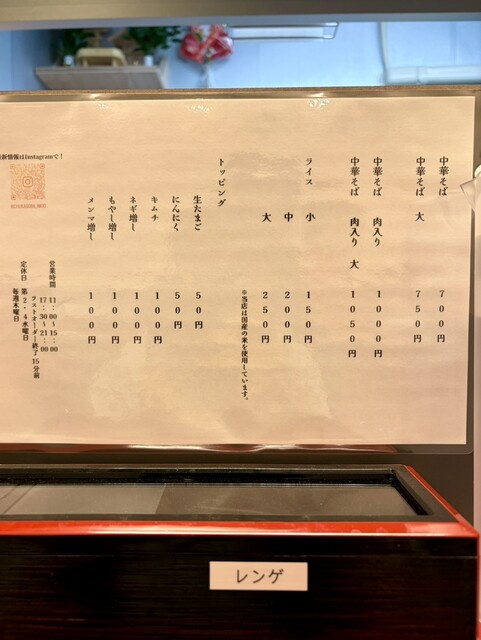 中華そば 700円
中華そば 大 750円
中華そば 肉入り 1000円
中華そば 肉入り 大 1050円
ライス 小 150円
中 200円
大 250円
※当店は国産の米を使用しています。
トッピング
生たまご 50円
にんにく 50円
キムチ 100円
ネギ増し 100円
もやし増し 100円
メンマ増し 100円
営業時間 11:00~15:00
17:30~21:00
ラストオーダー終了15分前
定休日 第2・4水曜日
毎週木曜日
新情報はInstagramで!
レンゲ